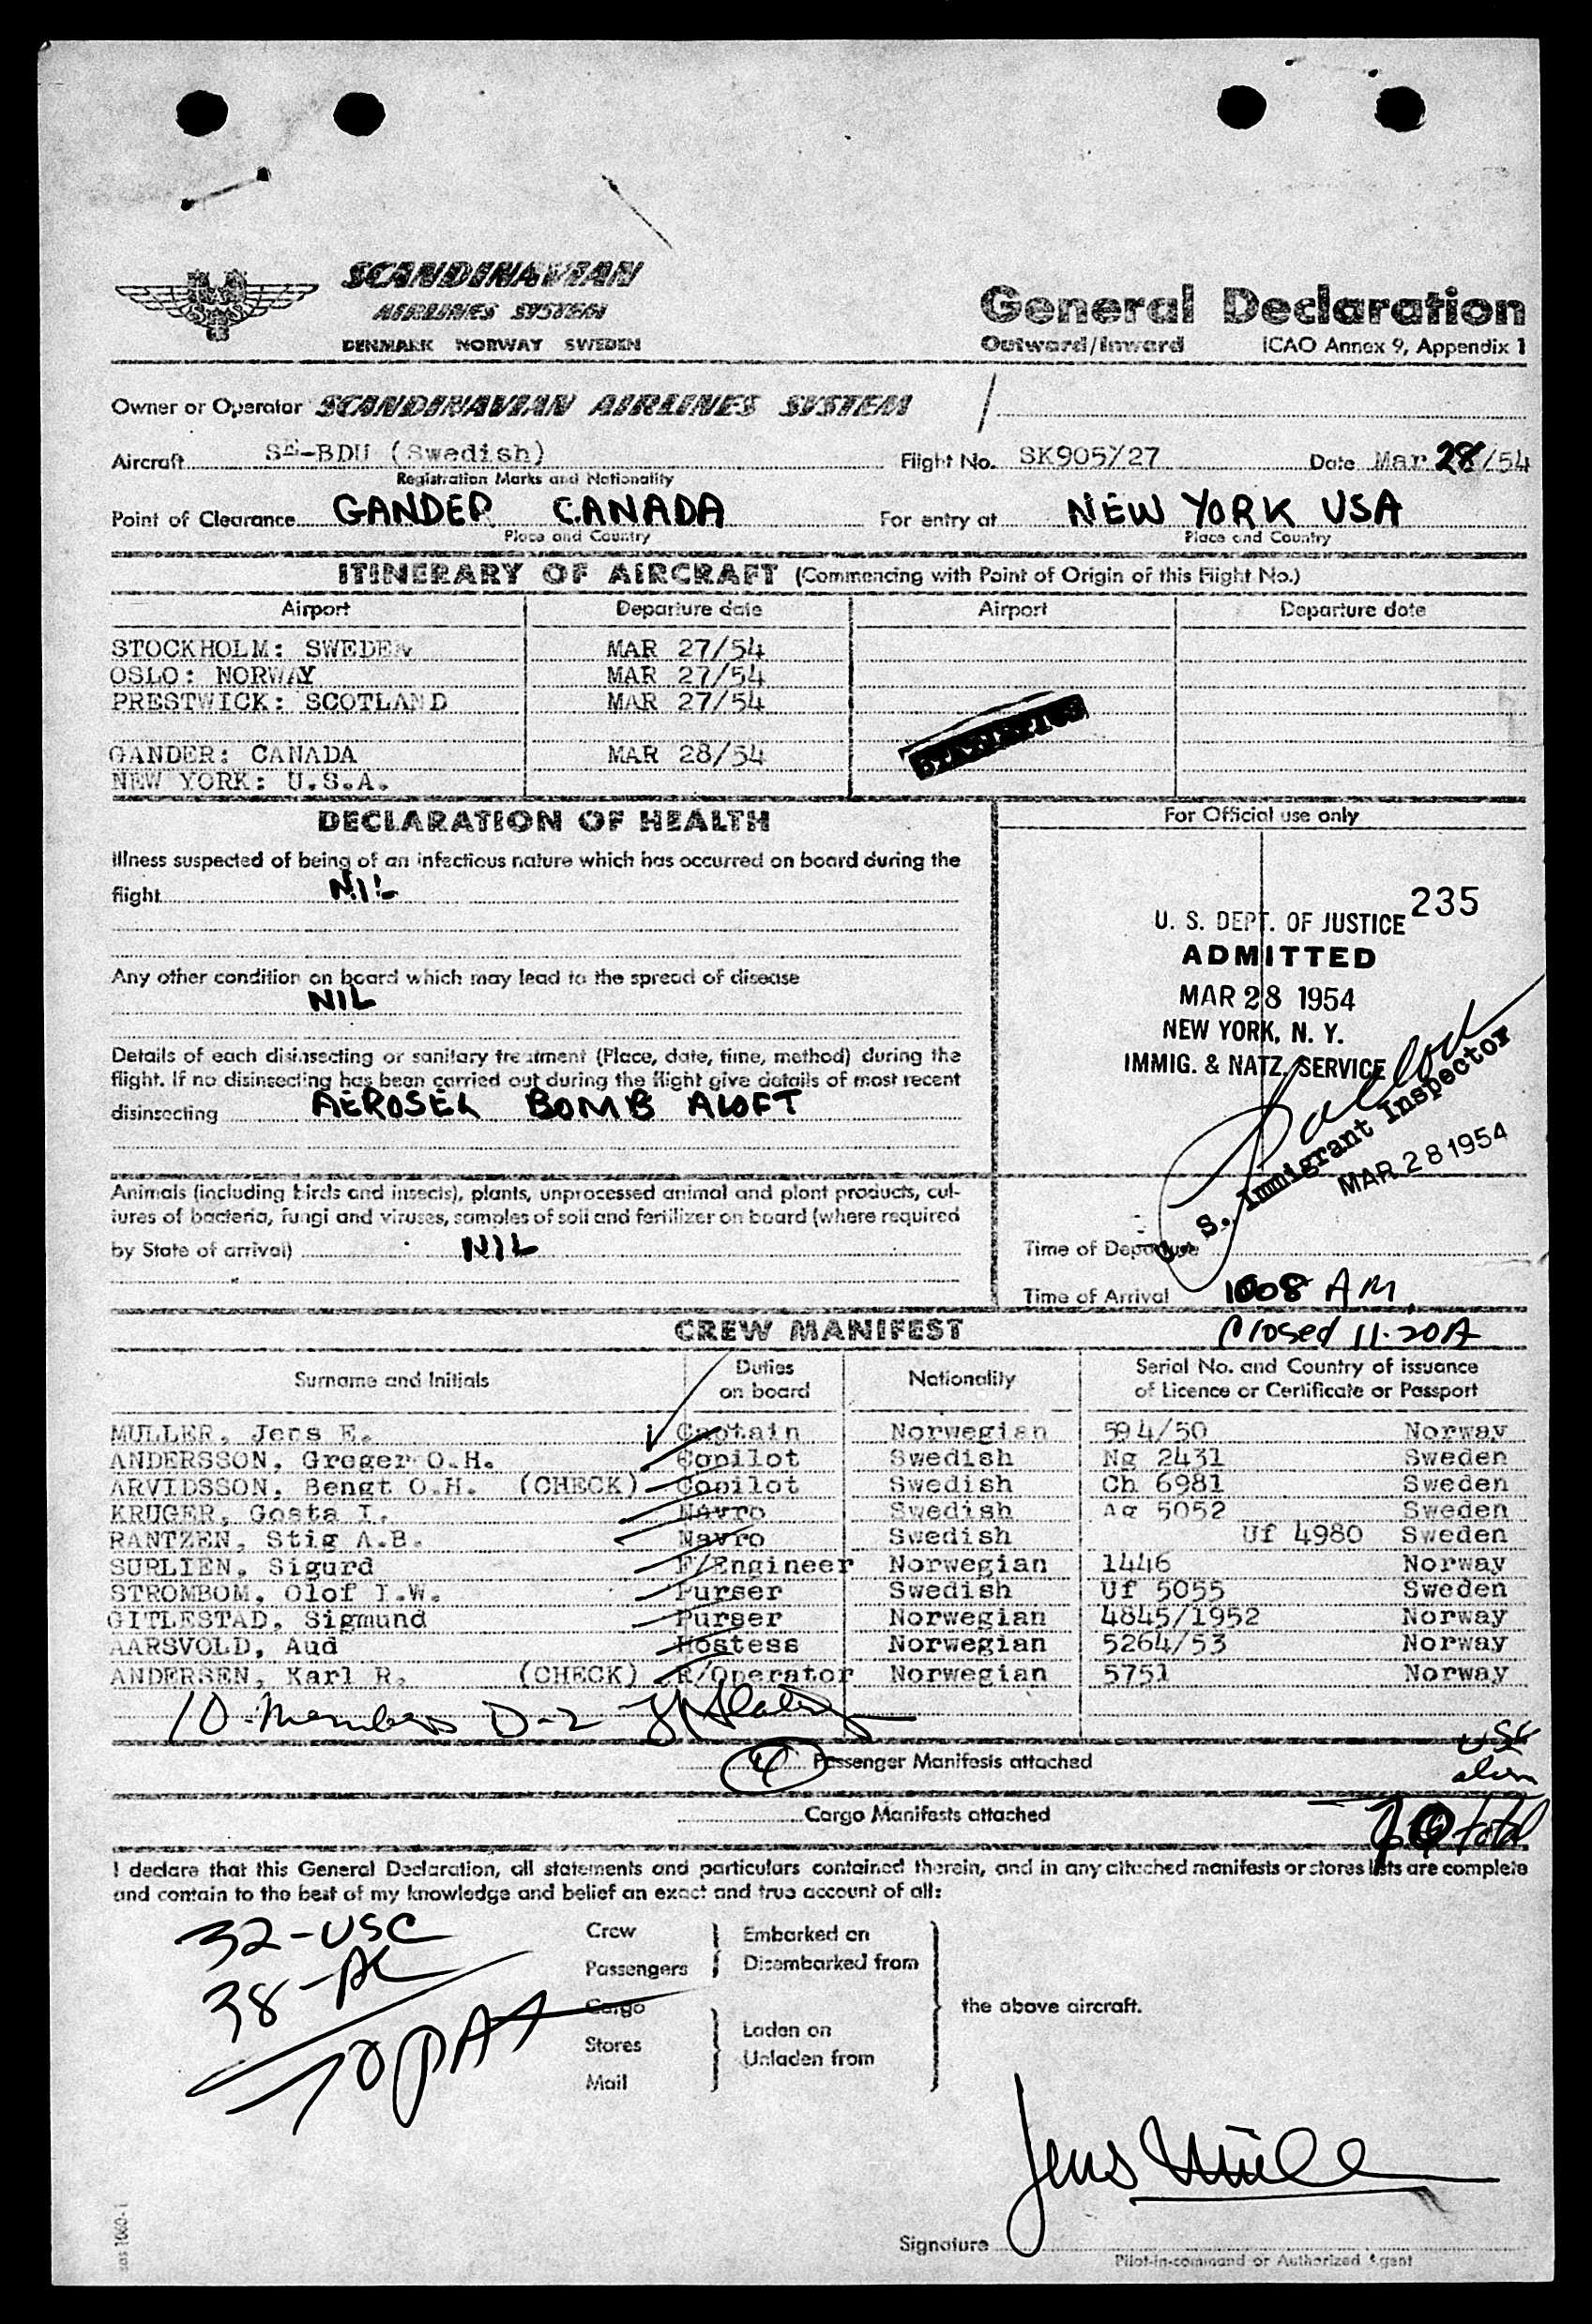 SCANDINAVIAN
AIRLINES SYSTEM
DENMARK NORWAY SWEDEN
General Declaration
Outward/Inward ICAO Annex 9, Appendix 1
Owner or Operator SCANDINAVIAN AIRLINES SYSTEM
Aircraft SE-BDU (Swedish) Flight No. SK905/27 Date Mar 28/54
Registration Marks and Nationality
Point of Clearance GANDER CANADA For entry at NEW YORK USA
Place and Country Place and Country
ITINERARY OF AIRCRAFT (Commencing with Point of Origin of this Flight No.)
Airport Departure date Airport Departure date
STOCKHOLM: SWEDEN MAR 27/54
OSLO: NORWAY MAR 27/54
PRESTWICK: SCOTLAND MAR 27/54
GANDER: CANADA MAR 28/54
NEW YORK: U.S.A.
STATISTICS
DECLARATION OF HEALTH
Illness suspected of being of an infectious nature which has occurred on board during the
flight NIL
Any other condition on board which may lead to the spread of disease
NIL
Details of each disinsecting or sanitary treatment (Place, date, time, method) during the
flight. If no disinsecting has been carried out during the flight give details of most recent
disinsecting AEROSEL BOMB ALOFT
Animals (including birds and insects), plants, unprocessed animal and plant products, cul-
tures of bacteria, fungi and viruses, samples of soil and fertilizer on board (where required
by State of arrival) NIL
For Official use only
235
U. S. DEPT. OF JUSTICE
ADMITTED
MAR 28 1954
NEW YORK, N. Y.
IMMIG. & NATZ. SERVICE
U. S. Immigrant Inspector
MAR 28 1954
Time of Departure
Time of Arrival 1008 AM
Closed 11.20A
CREW MANIFEST
Surname and Initials Duties on board Nationality Serial No. and Country of issuance of Licence or Certificate or Passport
MULLER, Jens E. Captain Norwegian 594/50 Norway
ANDERSSON, Greger O.H. Copilot Swedish Ng 2431 Sweden
ARVIDSSON, Bengt O.H. (CHECK) Copilot Swedish Ch 6981 Sweden
KRUGER, Gosta I. Navro Swedish Ag 5052 Sweden
RANTZEN, Stig A.B. Navro Swedish Uf 4980 Sweden
SURLIEN, Sigurd F/Engineer Norwegian 1446 Norway
STROMBOM, Olof I.W. Purser Swedish Uf 5055 Sweden
GITLESTAD, Sigmund Purser Norwegian 4845/1952 Norway
AARSVOLD, Aud Hostess Norwegian 5264/53 Norway
ANDERSEN, Karl R. (CHECK) R/Operator Norwegian 5751 Norway
10-Members D-2
(4) Passenger Manifests attached
USC
alien
Cargo Manifests attached
70 total
I declare that this General Declaration, all statements and particulars contained therein, and in any attached manifests or stores lists are complete
and contain to the best of my knowledge and belief an exact and true account of all:
32-USC
38-AL
70 PAX
Crew
Passengers
Cargo
Stores
Mail
Embarked on
Disembarked from
Laden on
Unladen from
the above aircraft.
Jens Müller
Signature
Pilot-in-command or Authorized Agent
sas 1060-1